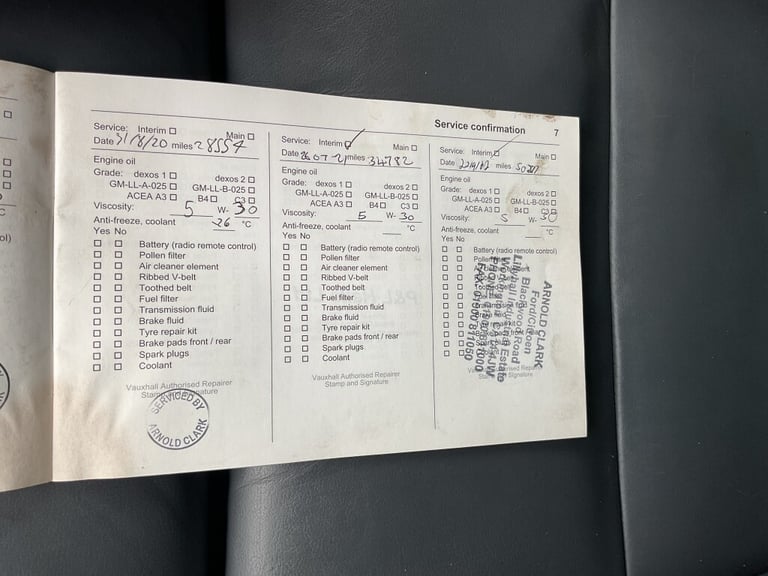 Service confirmation 7
Service: Interim Main
Date 31/8/20 miles 28554
Engine oil
Grade: dexos 1 dexos 2
GM-LL-A-025 GM-LL-B-025
ACEA A3 B4 C3
Viscosity: 5 W- 30
Anti-freeze, coolant -26 °C
Yes No
Battery (radio remote control)
Pollen filter
Air cleaner element
Ribbed V-belt
Toothed belt
Fuel filter
Transmission fluid
Brake fluid
Tyre repair kit
Brake pads front / rear
Spark plugs
Coolant
Vauxhall Authorised Repairer
Stamp and Signature
SERVICED BY
ARNOLD CLARK
Service: Interim Main
Date 26 07 21 miles 34782
Engine oil
Grade: dexos 1 dexos 2
GM-LL-A-025 GM-LL-B-025
ACEA A3 B4 C3
Viscosity: 5 W- 30
Anti-freeze, coolant °C
Yes No
Battery (radio remote control)
Pollen filter
Air cleaner element
Ribbed V-belt
Toothed belt
Fuel filter
Transmission fluid
Brake fluid
Tyre repair kit
Brake pads front / rear
Spark plugs
Coolant
Vauxhall Authorised Repairer
Stamp and Signature
Service: Interim Main
Date miles
Engine oil
Grade: dexos 1 dexos 2
GM-LL-A-025 GM-LL-B-025
ACEA A3 B4 C3
Viscosity: 5 W- 30
Anti-freeze, coolant °C
Yes No
Battery (radio remote control)
ARNOLD CLARK
Ford/Citroen
Blackwood Road
Estate
Stamp and Signature